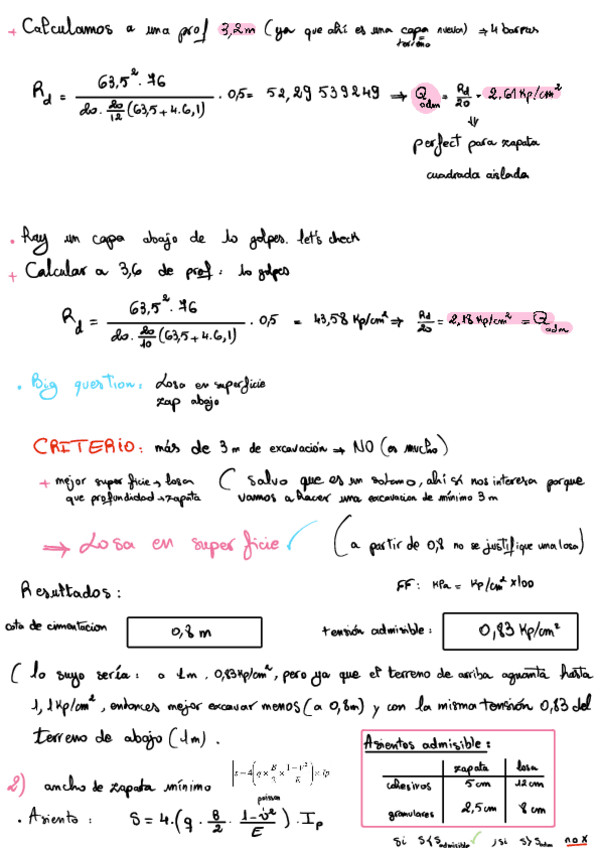 + Calculamos a una prof 3,2m (ya que ahí es una capa nueva) ⇒ 4 barras
terreno
Rd = 63,5² · 76 / 20 · 20/12 (63,5 + 4 · 6,1) · 0,5 = 52,29539249 → Qadm = Rd/20 = 2,61 Kp/cm²
⇓
perfect para zapata
cuadrada aislada
· Hay un capa abajo de 10 golpes. let's check
+ Calcular a 3,6 de prof: 10 golpes
Rd = 63,5² · 76 / 20 · 20/10 (63,5 + 4 · 6,1) · 0,5 = 43,58 Kp/cm² ⇒ Rd/20 = 2,18 Kp/cm² = Qadm
· Big question: Losa en superficie
zap abajo
CRITERIO: más de 3m de excavación → NO (es mucho)
+ mejor superficie → losa (salvo que es un sotano, ahí sí nos interesa porque
que profundidad → zapata vamos a hacer una excavacion de mínimo 3m
⇒ Losa en superficie ✓ (a partir de 0,8 no se justifique una losa)
Resultados: FF: KPa = Kp/cm² x100
cota de cimentacion 0,8 m tensión admisible: 0,83 Kp/cm²
(lo suyo sería: a 1m. 0,83Kp/cm², pero ya que el terreno de arriba aguanta hasta
1,1Kp/cm², entonces mejor excavar menos (a 0,8m) y con la misma tensión 0,83 del
terreno de abajo (1m).
Asientos admisible:
zapata losa
cohesivos 5cm 12cm
granulares 2,5cm 8cm
2) ancho de zapata mínimo s=4(q×B/2×1−ν²/E)×Ip
poisson
· Asiento: S = 4 · (q · B/2 · 1-ν²/E) · Ip
Si S<Sadmisible ✓, si S>Sadm no X